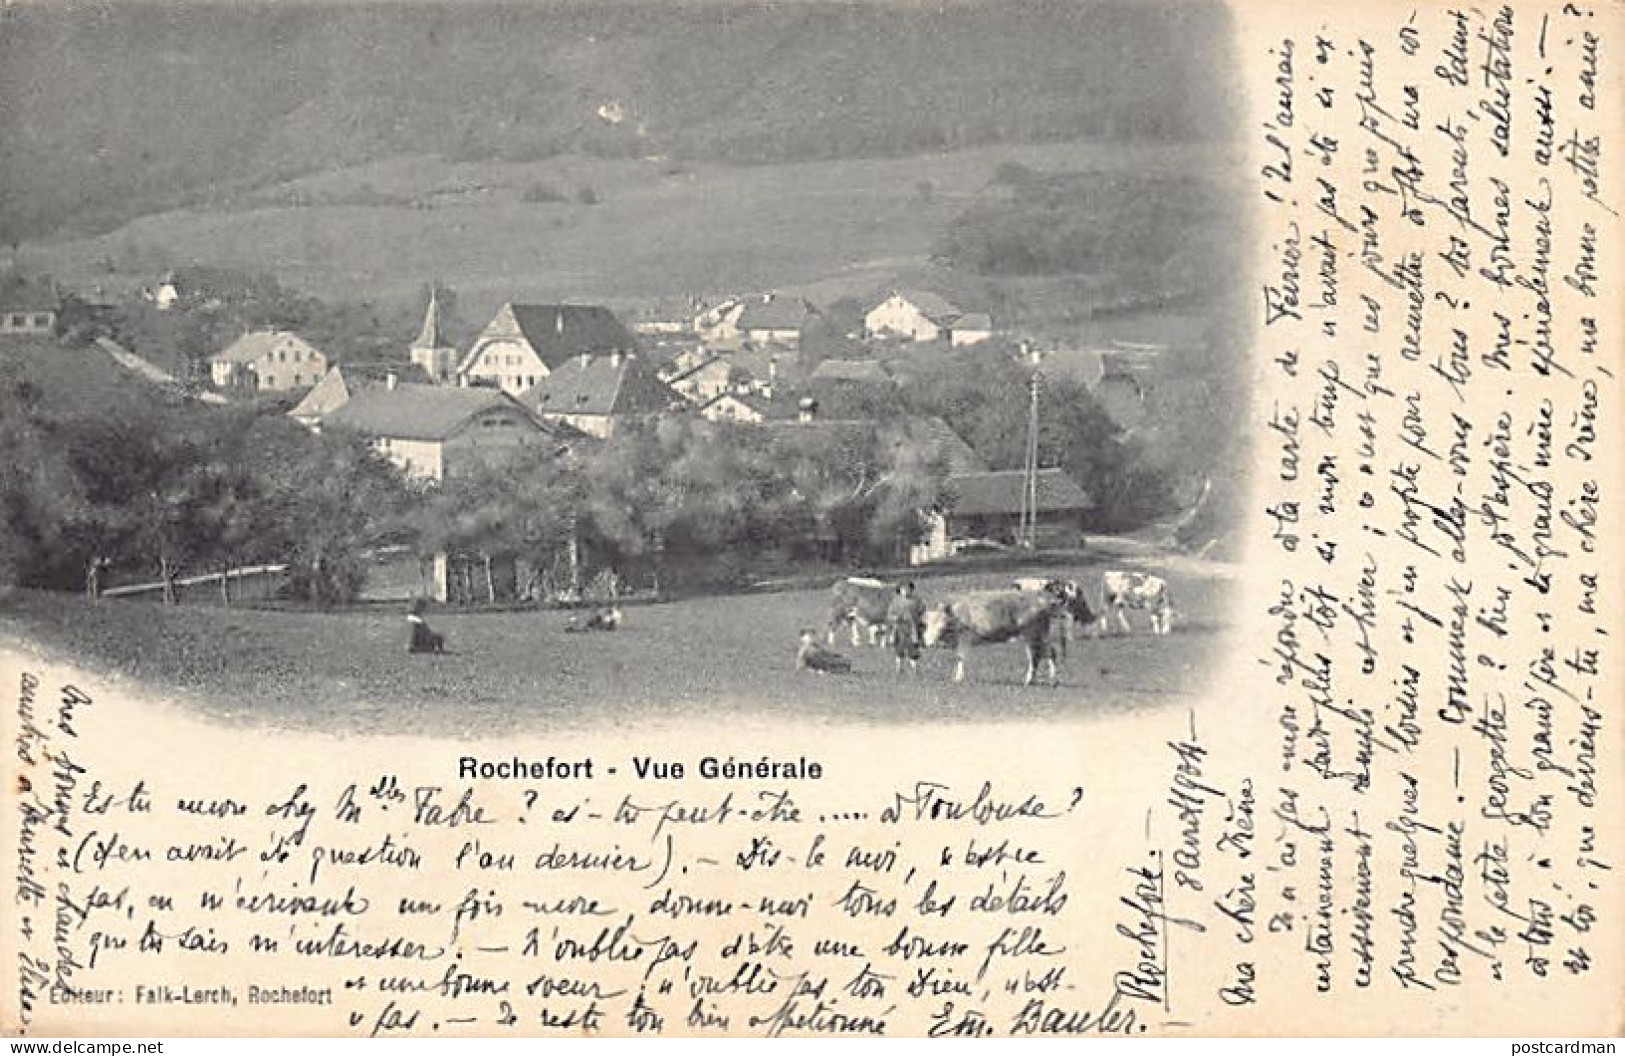 Rochefort.
8 avril 1904
Ma chère Irène
Je n'ai pas mon répondu à ta carte de Février! Je l'aurais
certainement fait plus tôt si mon temps n'avait pas été si ex-
cessivement rempli cet hiver; ce n'est que ces jours que je puis
prendre quelques loisirs et j'en profite pour remettre à flot ma cor-
respondance. — Comment allez-vous tous? tes parents, Edmond,
et la petite Georgette? bien, j'espère. Mes bonnes salutations
à tous, à ton grand'père et ta grand'mère spécialement aussi. —
Et toi, que deviens-tu, ma chère Irène, ma bonne petite amie?
Rochefort - Vue Générale
Es tu encore chez Melles Fabre? es-tu peut-être ..... à Toulouse?
(Il en avait été question l'an dernier). — Dis-le moi, n'est-ce
pas, en m'écrivant une fois encore, donne-moi tous les détails
que tu sais m'intéresser. — N'oublie pas d'être une bonne fille
et une bonne soeur; n'oublie pas ton Dieu, n'est-
ce pas. — Je reste ton bien affectionné Em. Bauler. —
Mes bonnes et chaudes
amitiés à Henriette et
Editeur: Falk-Lerch, Rochefort
postcards-ma-collection.delcampe.net
postcardman